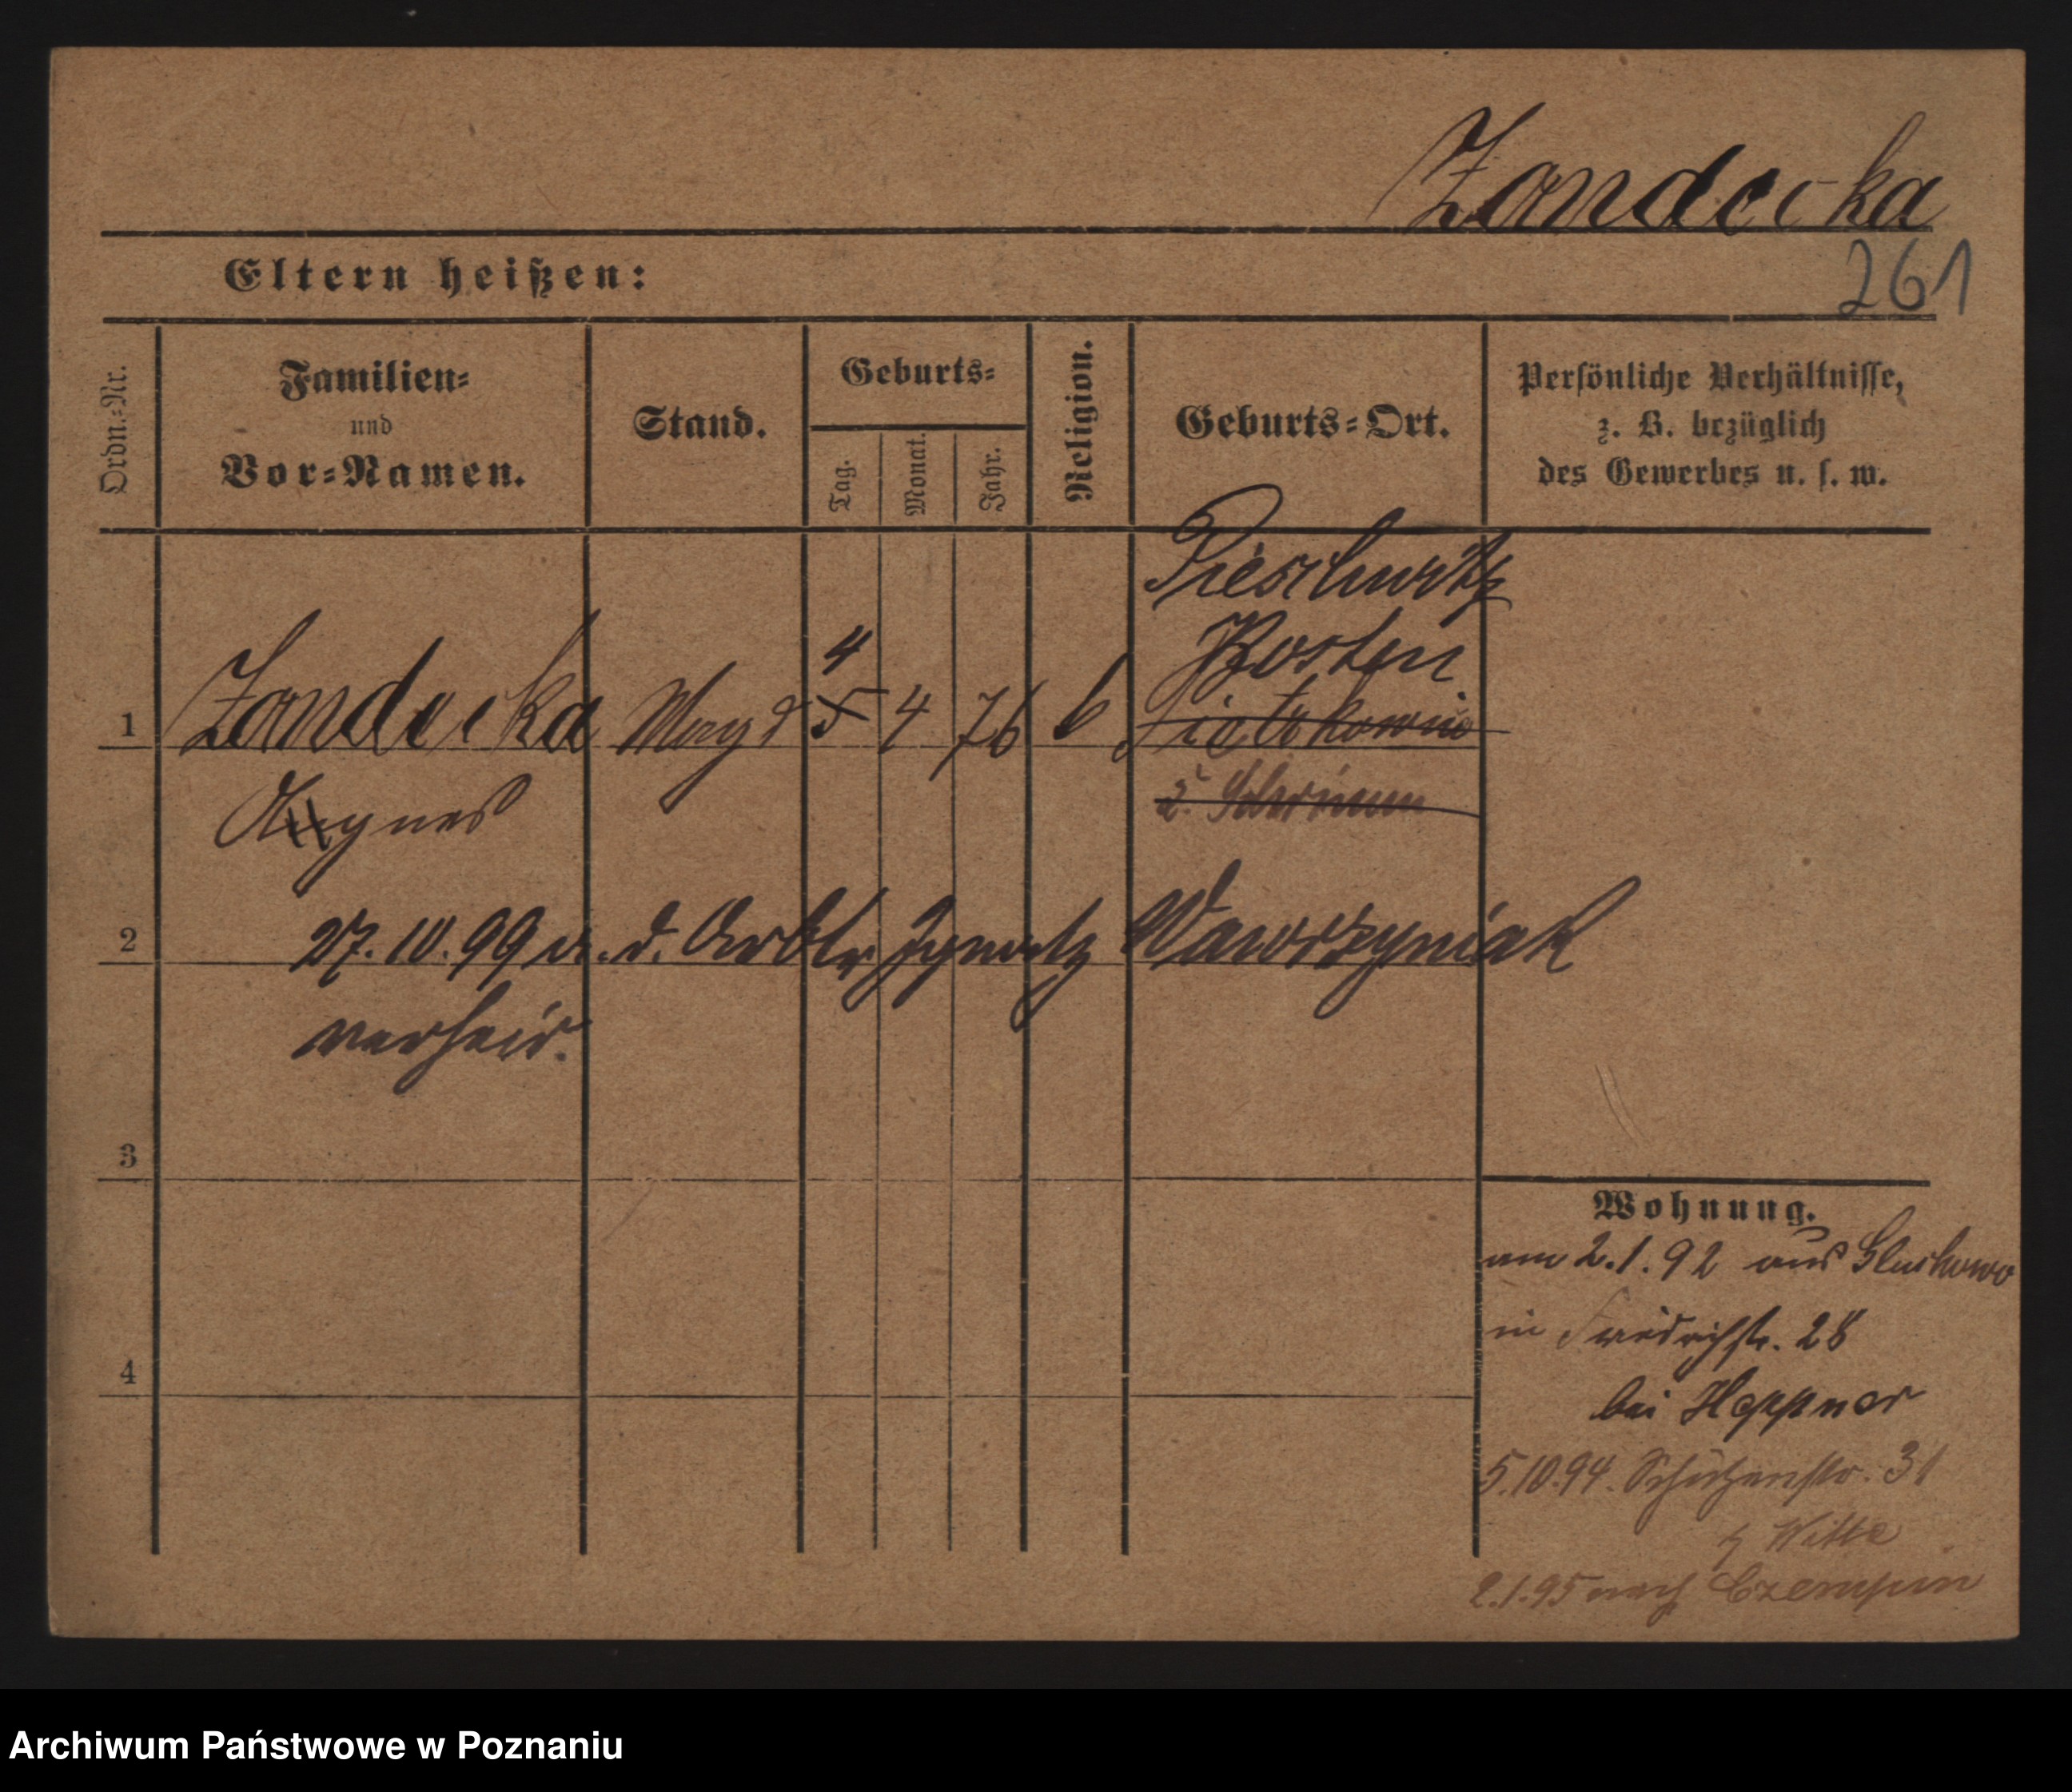 Zandecka
261
Eltern heißen:
Ordn.-Nr.
Familien-
und
Vor-Namen.
Stand.
Geburts-
Tag.
Monat.
Jahr.
Religion.
Geburts-Ort.
Persönliche Verhältnisse,
z. B. bezüglich
des Gewerbes u. s. w.
Kosten
4
1 Zandecka Magd 5 4 76
Agnes
2
27.10.99 m. d. Arbtr Ignatz Wawrzyniak
verheir.
3
4
Wohnung.
am 2.1.92 aus Gluchowo
in Friedrichstr. 28
bei Heppner
5.10.94. Schützenstr. 31
Witte
2.1.95 nach Czempin
Archiwum Państwowe w Poznaniu